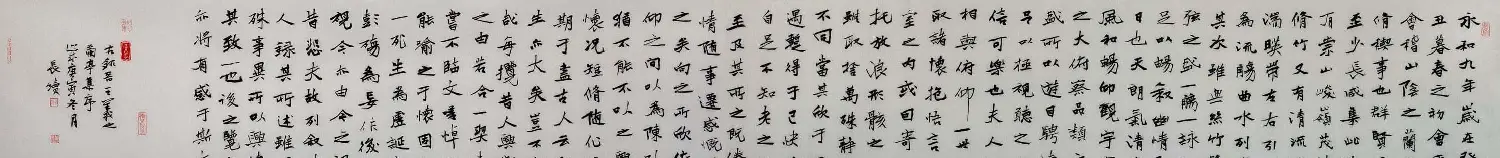 永和九年歲在
丑暮春之初會
會稽山陰之蘭
脩禊事也群賢
至少長咸集此
有崇山峻嶺茂
脩竹又有清流
湍暎帶左右引
為流觴曲水列
其次雖無絲竹
弦之盛一觴一詠
足以暢叙幽情
日也天朗氣清
風和暢仰觀宇
之大俯察品類
盛所以遊目騁
足以極視聽之
信可樂也夫人
相與俯仰一世
取諸懷抱悟言
室之内或因寄
託放浪形骸之
雖取捨萬殊靜
不同當其欣于
遇蹔得于己快
自足不知老之
至及其所之既倦
情隨事遷感慨
之矣向之所欣
仰之間以為陳
猶不能不以之
懷況短脩隨化
期于盡古人云
生亦大矣豈不
哉每攬昔人興
之由若合一契
嘗不臨文嗟悼
能喻之于懷固
一死生為虛誕
彭殤為妄作後
視今亦由今之
昔悲夫故列叙
人録其所述雖
殊事異所以興
其致一也後之覽
亦將有感于斯
王羲之
蘭亭集序
庚寅冬月
長